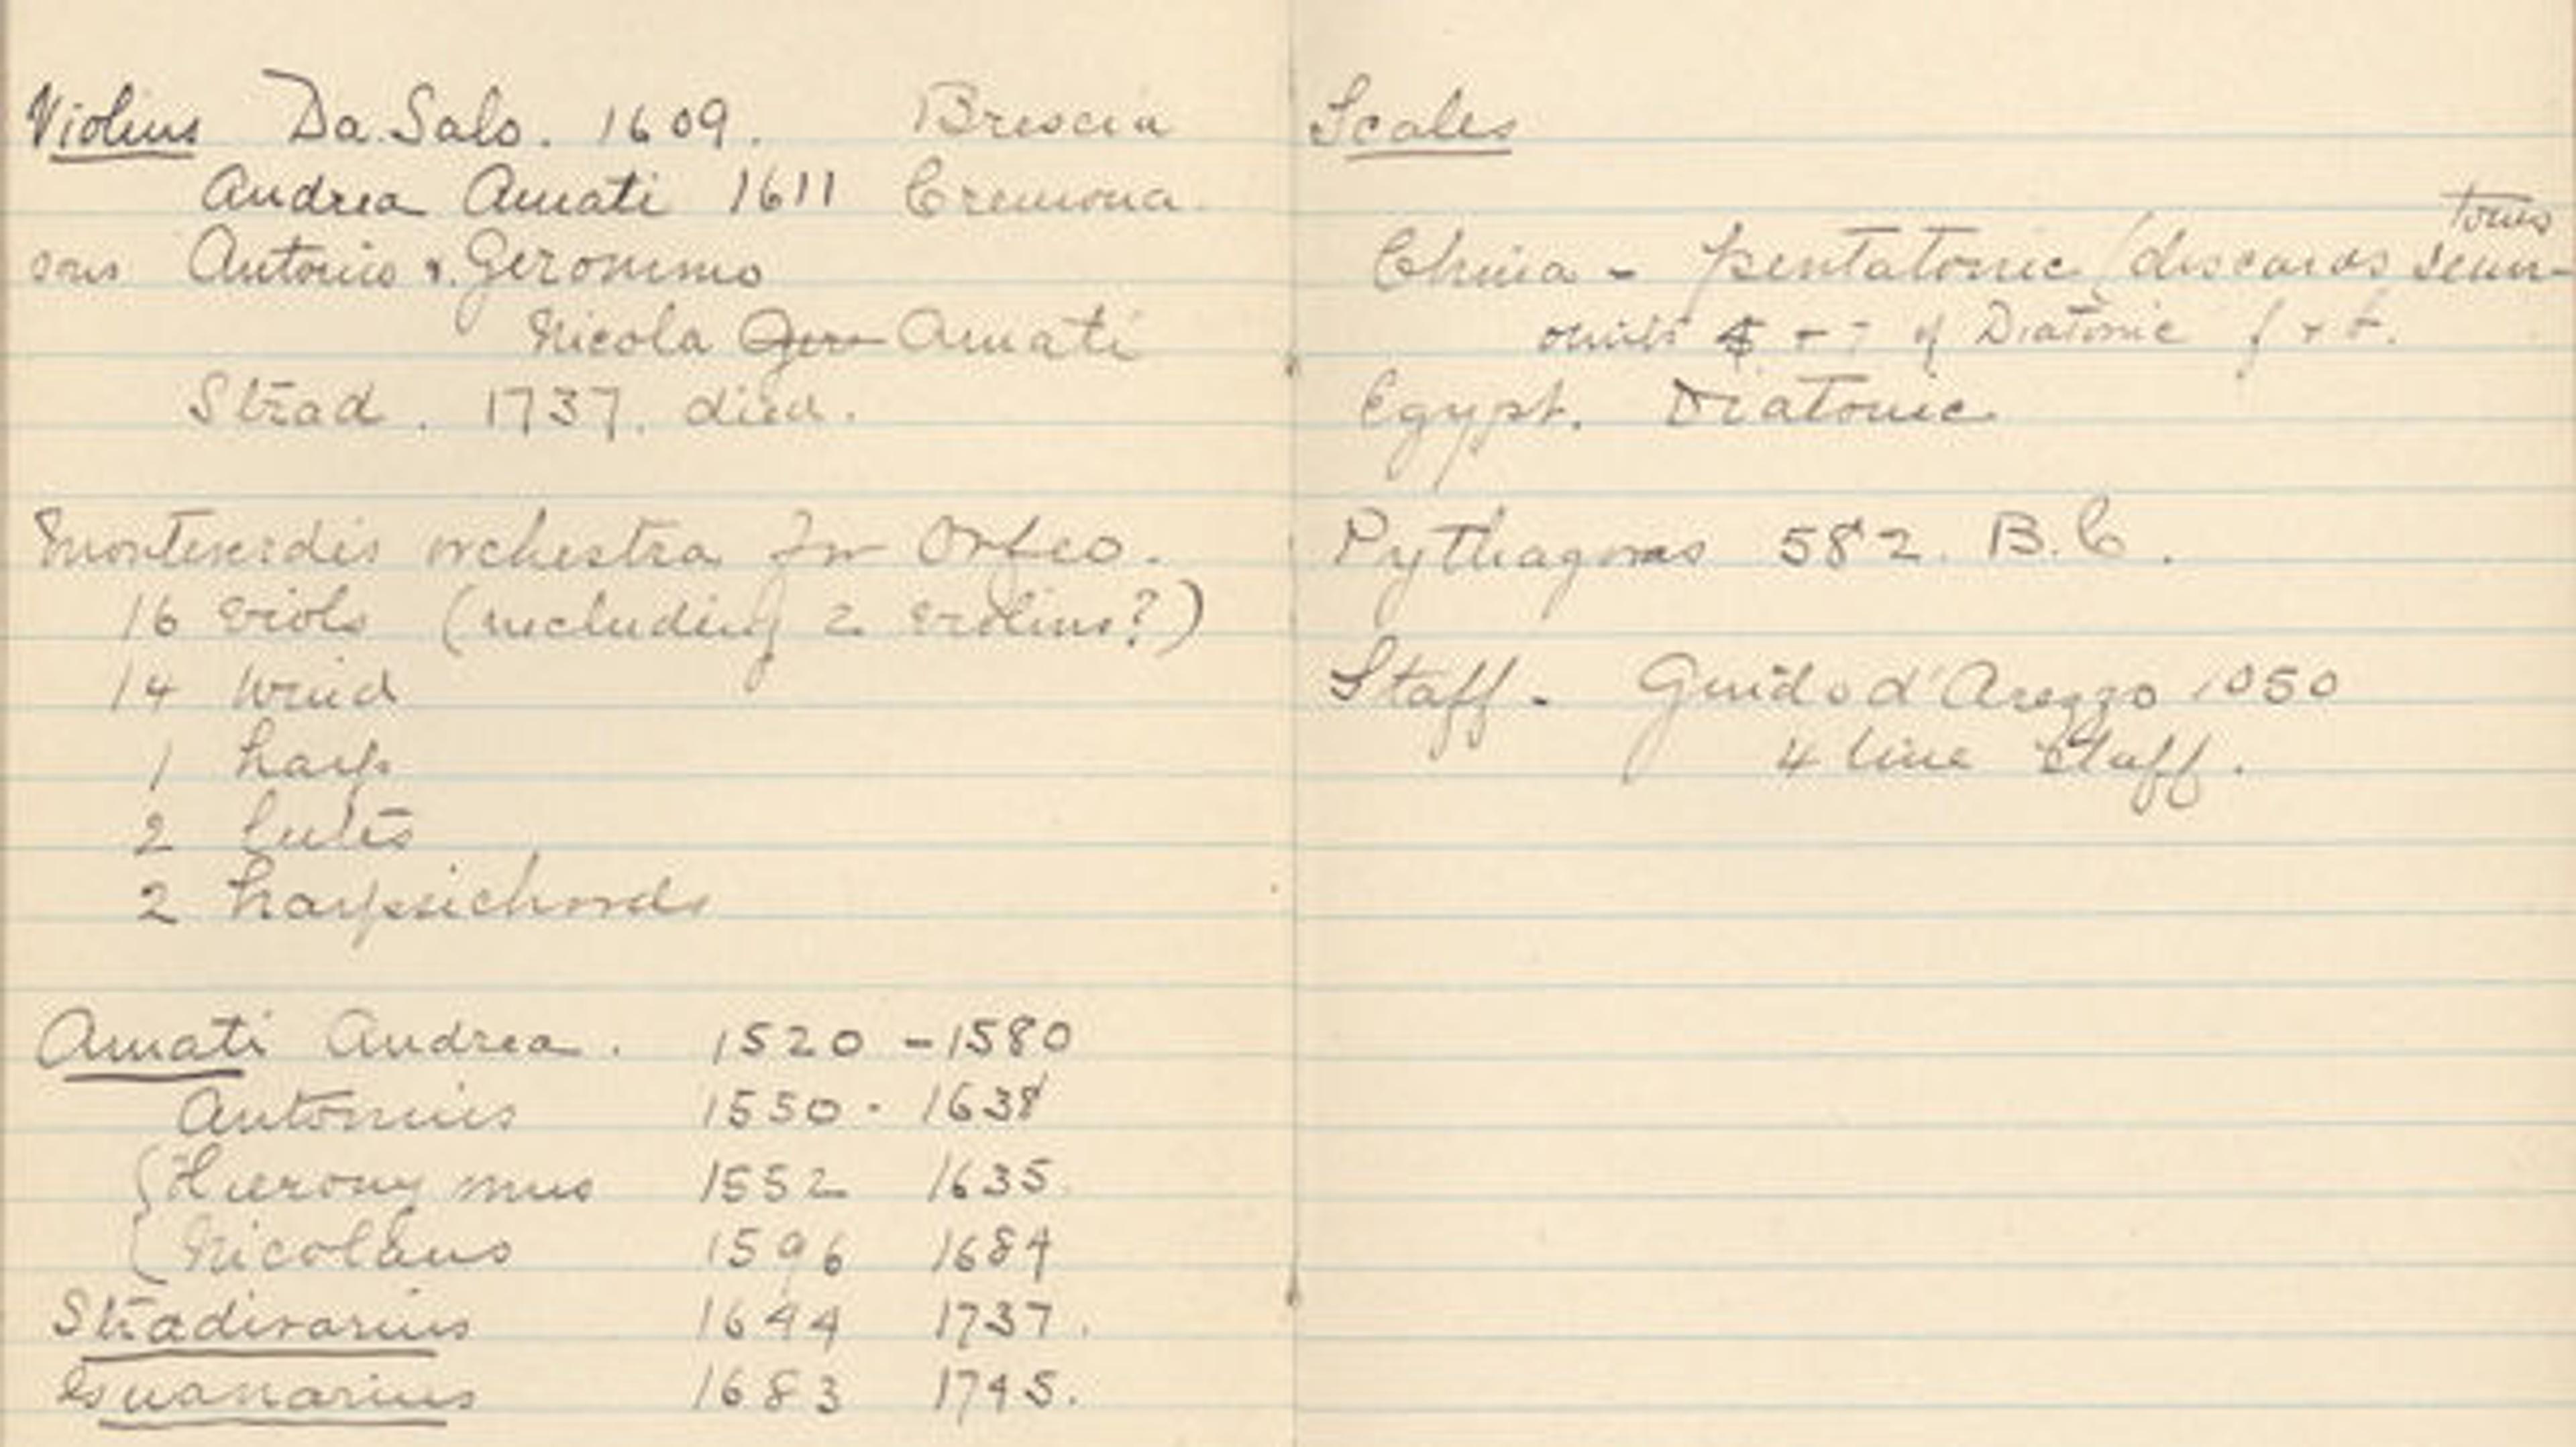 Violins Da. Salo. 1609. Brescia
Andrea Amati 1611 Cremona.
sons Antonio & Geronimo
Nicola Gero Amati
Strad. 1737. died.
Monteverdis orchestra for Orfeo.
16 viols (including 2 violins?)
14 wind
1 harp
2 lutes
2 harpsichords
Amati Andrea. 1520 - 1580
Antonius 1550 - 1638
{Hieronymus 1552 1635
{Nicolaus 1596 1684
Stradivarius 1644 1737.
Guanarius 1683 1745.
Scales
China - pentatonic (discards semi-tones
omits 4 + 7 of Diatonic f + b.
Egypt. Diatonic
Pythagoras 582. B.C.
Staff - Guido d'Arezzo 1050
4 line staff.